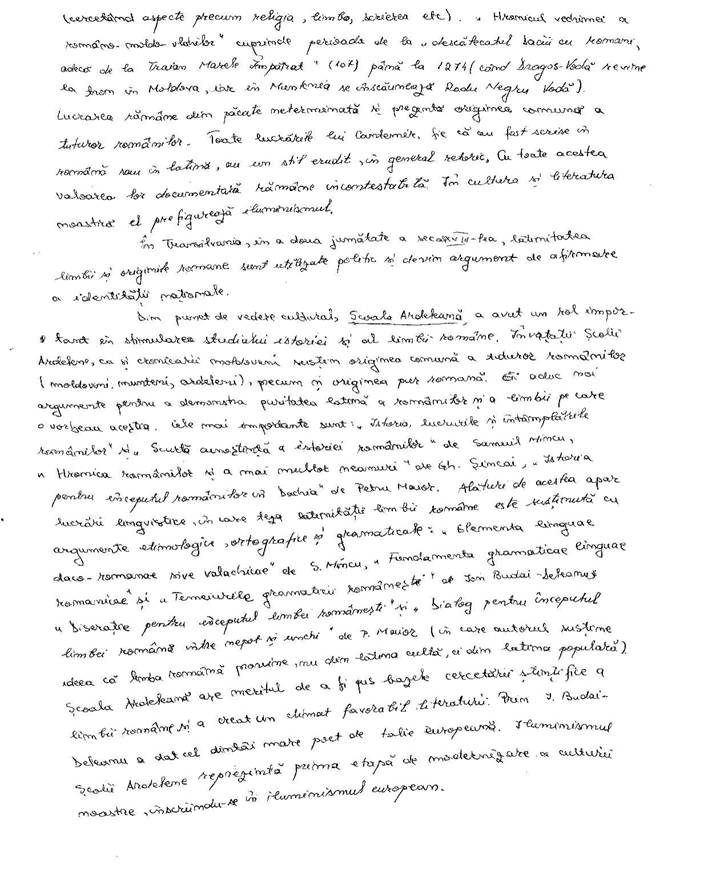 (cercetând aspecte precum religia, limba, scrierea etc). „Hronicul vechimei a
romano-moldo-vlahilor" cuprinde perioada de la „descălecatul Daciii cu romani,
adică de la Traian Marele Împărat" (107) până la 1274 (când Dragoș-Vodă revine
la tron în Moldova, iar în Muntenia se înscăunează Radu Negru Vodă").
Lucrarea rămâne din păcate neterminată și prezintă originea comună a
tuturor românilor. Toate lucrările lui Cantemir, fie că au fost scrise în
română sau în latină, au un stil erudit, în general retoric, Cu toate acestea
valoarea lor documentară rămâne incontestabilă În cultura și literatura
noastră el prefigurează iluminismul.
În Transilvania, în a doua jumătate a secolXVIII-lea, latinitatea
limbii și originile romane sunt utilizate politic și devin argument de afirmare
a identității naționale.
Din punct de vedere cultural, Școala Ardeleană, a avut un rol impor-
tant în stimularea studiului istoriei și al limbii române. Învățații Școlii
Ardelene, ca și cronicarii moldoveni susțin originea comună a tuturor românilor
(moldoveni, munteni, ardeleni), precum și originea pur romană. Ei aduc noi
argumente pentru a demonstra puritatea latină a românilor și a limbii pe care
o vorbeau aceștia. cele mai importante sunt: „Istoria, lucrurile și întâmplările
românilor" și „Scurtă cunoștință a istoriei românilor" de Samuil Micu,
„Hronica românilor și a mai multor neamuri" de Gh. Șincai, „Istoria
pentru începutul românilor în Dachia" de Petru Maior. Alături de acestea apar
lucrări lingvistice, în care teza latinității limbii române este susținută cu
argumente etimologice, ortografice și gramaticale: „Elementa linguae
daco-romanae sive valachicae" de S. Micu, „Fundamenta gramaticae linguae
romanicae" și „Temeiurile gramaticii românești" de Ion Budai-Deleanu,
„Diserație pentru începutul limbei românești" și „Dialog pentru începutul
limbei română între nepot și unchi" de P. Maior (în care autorul susține
ideea că limba română provine, nu din latina cultă, ci din latina populară)
Școala Ardeleană are meritul de a fi pus bazele cercetării științifice a
limbii române și a creat un climat favorabil literaturii. Prin I. Budai-
Deleanu a dat cel dintâi mare poet de talie europeană. Iluminismul
Școlii Ardelene reprezintă prima etapă de modernizare a culturii
noastre, înscriindu-se în iluminismul european.